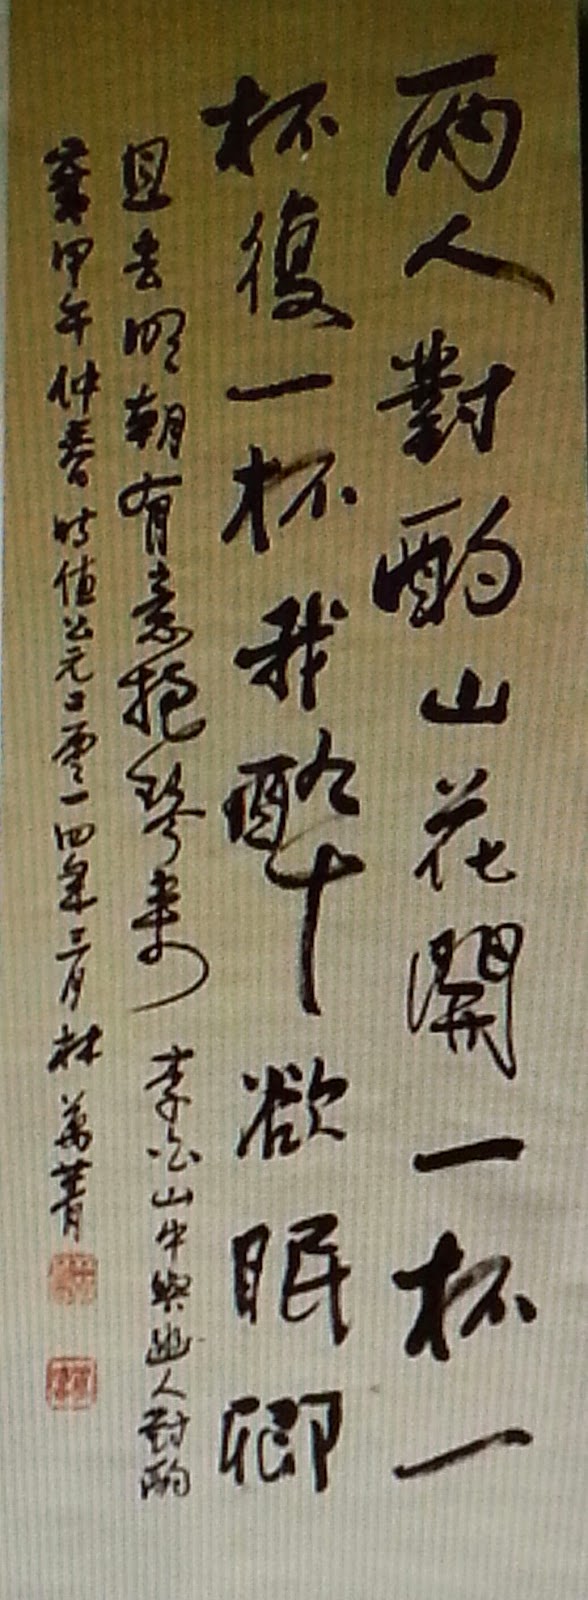 兩人對酌山花開一杯一
杯復一杯我醉欲眠卿
且去明朝有意抱琴來 李白山中與幽人對酌
甲午仲春時值公元二零一四年三月林萬菁